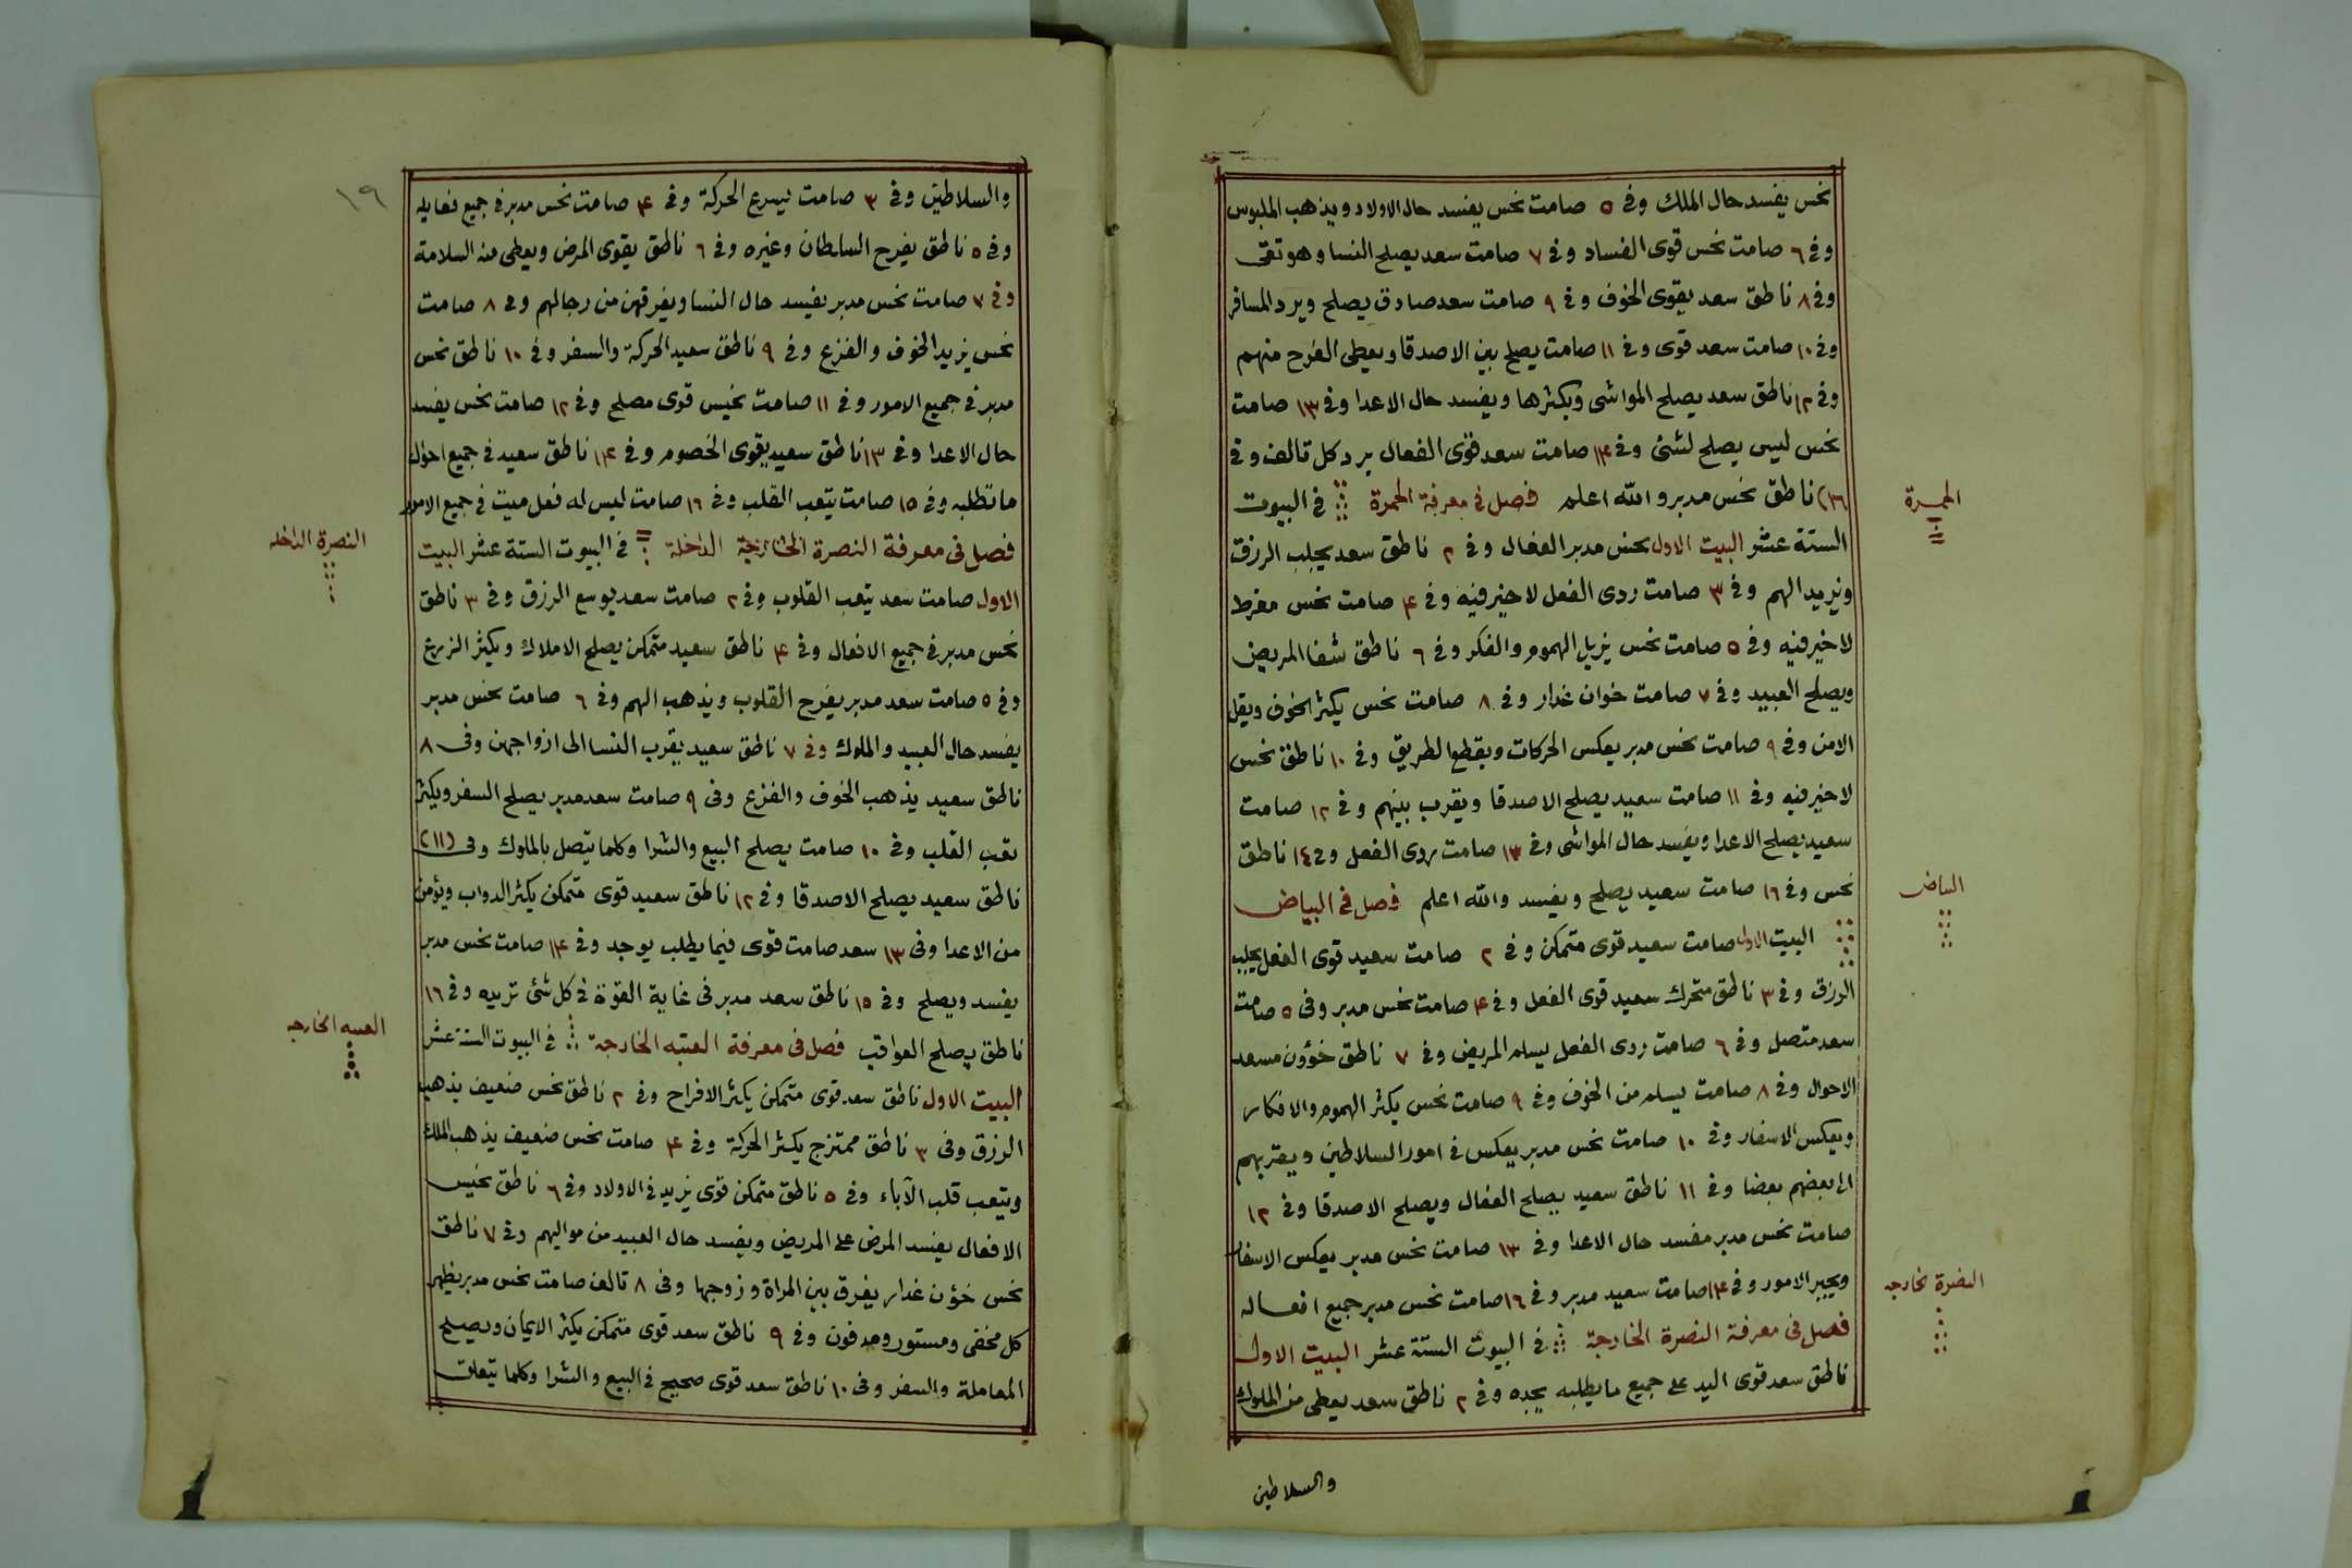 نحس يفسد حال الملك وفي ٥ صامت نحس يفسد حال الاولاد ويذهب الملبوس
وفي ٦ صامت نحس قوى الفساد وفي ٧ صامت سعد يصلح النسا وهو تقى
وفي ٨ ناطق سعد يقوى الخوف وفي ٩ صامت سعد صادق يصلح ويرد المسافر
وفي ١٠ صامت سعد قوى وفي ١١ صامت يصلح بين الاصدقا ويعطى الفرح منهم
وفي ١٢ ناطق سعد يصلح المواشى ويكثرها ويفسد حال الاعدا وفي ١٣ صامت
نحس ليس يصلح لشئ وفي ١٤ صامت سعد قوى الفعال يرد كل تالف وفي
(١٦) ناطق نحس مدبر والله اعلم فصل في معرفة الحمرة في البيوت
الحمرة
الستة عشر البيت الاول نحس مدبر الفعال وفي ٢ ناطق سعد يجلب الرزق
ويزيد الهم وفي ٣ صامت ردى الفعل لا خير فيه وفي ۴ صامت نحس مفرط
لا خير فيه وفي ٥ صامت نحس يزيل الهموم والفكر وفي ٦ ناطق شفا المريض
ويصلح العبيد وفي ٧ صامت خوان غدار وفي ٨ صامت نحس يكثر الخوف ويقل
الامن وفي ٩ صامت نحس مدبر يعكس الحركات ويقطع الطريق وفي ١٠ ناطق نحس
لا خير فيه وفي ١١ صامت سعيد يصلح الاصدقا ويقرب بينهم وفي ١٢ صامت
سعيد يصلح الاعدا ويفسد حال المواشى وفي ١٣ صامت ردى الفعل وفي ١٤ ناطق
نحس وفي ١٦ صامت سعيد يصلح ويفسد والله اعلم فصل في البياض
البياض
البيت الاول صامت سعيد قوى متمكن وفي ٢ صامت سعيد قوى الفعل يجلب
الرزق وفي ٣ ناطق متحرك سعيد قوى الفعل وفي ۴ صامت نحس مدبر وفى ٥ صامت
سعد متصل وفي ٦ صامت ردى الفعل يسلم المريض وفي ٧ ناطق خؤون مسعد
الاحوال وفي ٨ صامت يسلم من الخوف وفي ٩ صامت نحس يكثر الهموم والافكار
ويعكس الاسفار وفي ١٠ صامت نحس مدبر يعكس في امور السلاطين ويقربهم
الى بعضهم بعضا وفي ١١ ناطق سعيد يصلح الفعال ويصلح الاصدقا وفي ١٢
صامت نحس مدبر مفسد حال الاعدا وفي ١٣ صامت نحس مدبر يعكس الاسفار
ويجبر الامور وفي ١۴ صامت سعيد مدبر وفي ١٦ صامت نحس مدبر جميع افعاله
النصرة خارجه
فصل فى معرفة النصرة الخارجة في البيوت الستة عشر البيت الاول
ناطق سعد قوى اليد على جميع ما يطلبه يجده وفي ٢ ناطق سعد يعطى من الملوك
والسلاطين
١٩
والسلاطين وفي ٣ صامت يسرع الحركة وفي ۴ صامت نحس مدبر في جميع فعايله
وفي ٥ ناطق يفرح السلطان وغيره وفي ٦ ناطق يقوى المرض ويعطى منه السلامة
وفي ٧ صامت نحس مدبر يفسد حال النسا ويفرقهن من رجالهم وفي ٨ صامت
نحس يزيد الخوف والفزع وفي ٩ ناطق سعيد الحركة والسفر وفي ١٠ ناطق نحس
مدبر في جميع الامور وفي ١١ صامت نحيس قوى مصلح وفي ١٢ صامت نحس يفسد
حال الاعدا وفي ١٣ ناطق سعيد يقوى الخصوم وفي ١۴ ناطق سعيد في جميع احوال
ما تطلبه وفي ١٥ صامت يتعب القلب وفي ١٦ صامت ليس له فعل ميت في جميع الامور
فصل فى معرفة النصرة الخارجة الداخلة في البيوت الستة عشر البيت
النصرة الداخله
الاول صامت سعد يتعب القلوب وفي ٢ صامت سعد يوسع الرزق وفي ٣ ناطق
نحس مدبر في جميع الافعال وفي ۴ ناطق سعيد متمكن يصلح الاملاك ويكثر الزرع
وفي ٥ صامت سعد مدبر يفرح القلوب ويذهب الهم وفي ٦ صامت نحس مدبر
يفسد حال العبيد والملوك وفي ٧ ناطق سعيد يقرب النسا الى ازواجهن وفى ٨
ناطق سعيد يذهب الخوف والفزع وفى ٩ صامت سعد مدبر يصلح السفر ويكثر
تعب القلب وفي ١٠ صامت يصلح البيع والشرا وكلما يتصل بالملوك وفى (١١)
ناطق سعيد يصلح الاصدقا وفي ١٢ ناطق سعيد قوى متمكن يكثر الدواب ويؤمن
من الاعدا وفى ١٣ سعد صامت قوى فيما يطلب يوجد وفي ١۴ صامت نحس مدبر
يفسد ويصلح وفي ١٥ ناطق سعد مدبر في غاية القوة في كل شئ تريده وفي ١٦
ناطق يصلح العواقب فصل فى معرفة العتبه الخارجة في البيوت الستة عشر
العتبه الخارجه
البيت الاول ناطق سعد قوى متمكن يكثر الافراح وفي ٢ ناطق نحس ضعيف يذهب
الرزق وفى ٣ ناطق ممتزج يكثر الحركة وفي ۴ صامت نحس ضعيف يذهب الملك
ويتعب قلب الآباء وفي ٥ ناطق متمكن قوى يزيد في الاولاد وفي ٦ ناطق نحيس
الافعال يفسد المرض على المريض ويفسد حال العبيد من مواليهم وفي ٧ ناطق
نحس خؤن غدار يفرق بين المراة وزوجها وفى ٨ تالف صامت نحس مدبر يظهر
كل مخفى ومستور ومدفون وفي ٩ ناطق سعد قوى متمكن يكثر الايمان ويصلح
المعاملة والسفر وفى ١٠ ناطق سعد قوى صحيح في البيع والشرا وكلما يتعلق